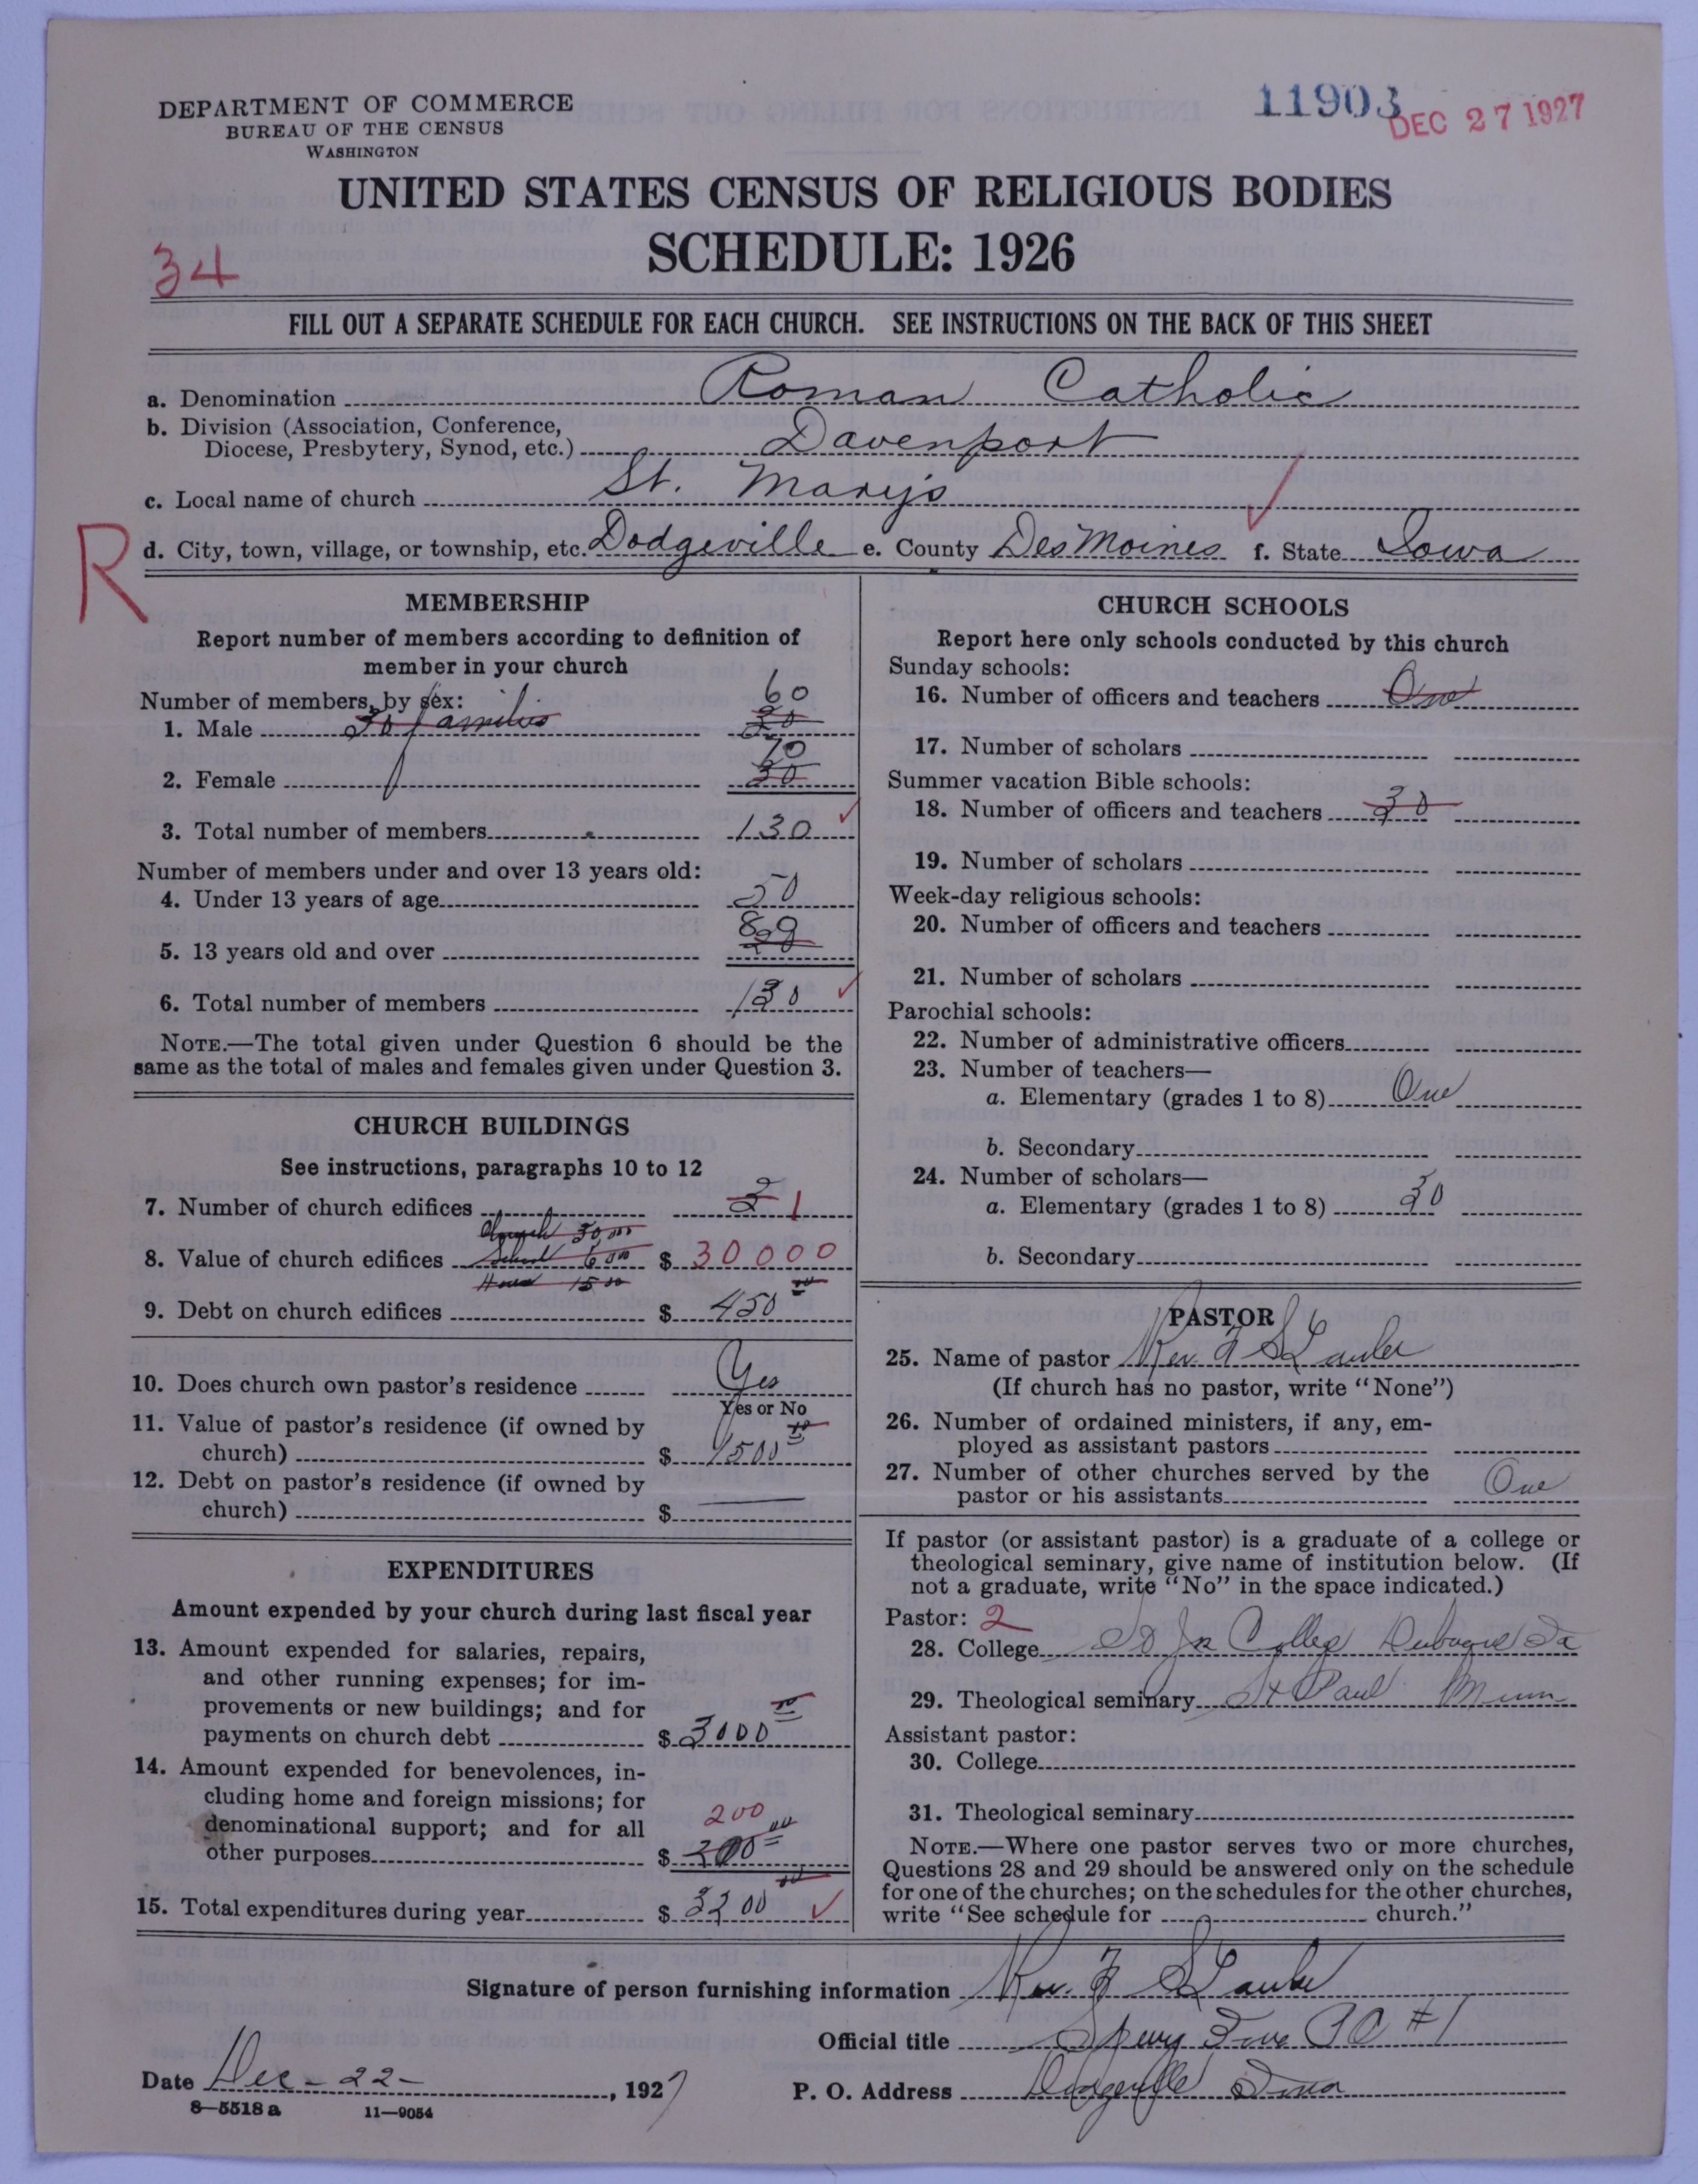 DEPARTMENT OF COMMERCE
BUREAU OF THE CENSUS
WASHINGTON
11903
DEC 27 1927
UNITED STATES CENSUS OF RELIGIOUS BODIES
SCHEDULE: 1926
34
FILL OUT A SEPARATE SCHEDULE FOR EACH CHURCH. SEE INSTRUCTIONS ON THE BACK OF THIS SHEET
a. Denomination Roman Catholic
b. Division (Association, Conference,
Diocese, Presbytery, Synod, etc.) Davenport
c. Local name of church St. Mary's
R
d. City, town, village, or township, etc. Dodgeville e. County Des Moines f. State Iowa
MEMBERSHIP
Report number of members according to definition of
member in your church
Number of members, by sex:
60
1. Male 30 families 30
70
2. Female 30
3. Total number of members 130
Number of members under and over 13 years old:
4. Under 13 years of age 50
5. 13 years old and over 80
6. Total number of members 130
NOTE.—The total given under Question 6 should be the
same as the total of males and females given under Question 3.
CHURCH BUILDINGS
See instructions, paragraphs 10 to 12
7. Number of church edifices 3 1
Church 30,000
8. Value of church edifices School 6000 $ 30000
House 1500
9. Debt on church edifices $ 450 00
10. Does church own pastor's residence Yes
Yes or No
11. Value of pastor's residence (if owned by
church) $ 1500 00
12. Debt on pastor's residence (if owned by
church) $
EXPENDITURES
Amount expended by your church during last fiscal year
13. Amount expended for salaries, repairs,
and other running expenses; for im-
provements or new buildings; and for
payments on church debt $ 3000 00
14. Amount expended for benevolences, in-
cluding home and foreign missions; for
denominational support; and for all
200
other purposes $ 200 00
15. Total expenditures during year $ 3200 00
CHURCH SCHOOLS
Report here only schools conducted by this church
Sunday schools:
16. Number of officers and teachers One
17. Number of scholars
Summer vacation Bible schools:
18. Number of officers and teachers 30
19. Number of scholars
Week-day religious schools:
20. Number of officers and teachers
21. Number of scholars
Parochial schools:
22. Number of administrative officers
23. Number of teachers—
a. Elementary (grades 1 to 8) One
b. Secondary
24. Number of scholars—
a. Elementary (grades 1 to 8) 30
b. Secondary
PASTOR
25. Name of pastor Rev. F S Lawler
(If church has no pastor, write "None")
26. Number of ordained ministers, if any, em-
ployed as assistant pastors
27. Number of other churches served by the
pastor or his assistants One
If pastor (or assistant pastor) is a graduate of a college or
theological seminary, give name of institution below. (If
not a graduate, write "No" in the space indicated.)
Pastor: 2
28. College College Dubuque Ia
29. Theological seminary St Paul Minn
Assistant pastor:
30. College
31. Theological seminary
NOTE.—Where one pastor serves two or more churches,
Questions 28 and 29 should be answered only on the schedule
for one of the churches; on the schedules for the other churches,
write "See schedule for church."
Signature of person furnishing information Rev. F S Lawler
Official title Sperry Iowa #1
Date Dec - 22 - , 1927
P. O. Address Dodgeville Iowa
8—5518 a 11—9054